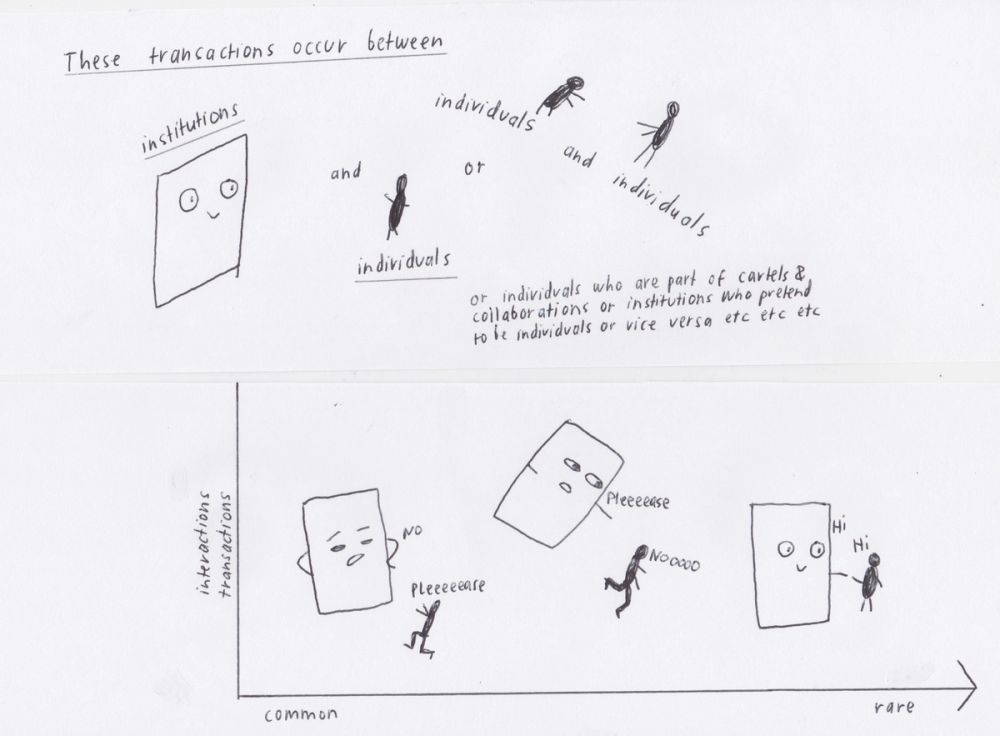 These transactions occur between
institutions
and
individuals
or
individuals
and
individuals
or individuals who are part of cartels &
collaborations or institutions who pretend
to be individuals or vice versa etc etc etc
interactions
transactions
NO
Pleeeeease
Pleeeease
NOoooo
Hi
Hi
common
rare